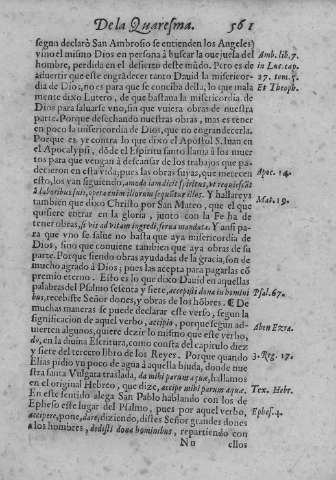 De la Quaresma. 561
segun declarò San Ambrosio se entienden los Angeles)
vino el mismo Dios en persona à buscar la ouejuela del
hombre, perdida en el desierto deste mũdo. Pero es de
aduertir que este engrãdecer tanto Dauid la misericor-
dia de Dios, no es para que se conciba della, lo que mala
mente dixo Lutero, de que bastaua la misericordia de
Dios para saluarse vno, sin que vuiera obras de nuestra
parte. Porque desechando nuestras obras, mas es tener
en poco la misericordia de Dios, que no engrandecerla.
Porque es ya contra lo que dixo el Apostol S. Iuan en
el Apocalypsi, dõde el Espiritu santo llama à los muer
tos para que vengan à descansar de los trabajos que pa-
decieron en esta vida; pues las obras suyas, que merecen
esto, los van siguiendo, amodo iam dicit spiritus, vt requiescãt
à laboribus suis, opera enim illorum sequuntur illos. Y hallareys
tambien que dixo Christo por San Mateo, que el que
quisiere entrar en la gloria, junto con la Fe ha de
tener obras, si vis ad vitam ingredi, serua mandata. Y ansi pa-
ra que vno se salue no basta que aya misericordia de
Dios, sino que conuiene tambien que aya obras de su
parte. Porque siendo obras ayudadas de la gracia, son de
mucho agrado à Dios; pues las acepta para pagarlas cõ
premio eterno. Esto es lo que dixo Dauid en aquellas
palabras del Psalmo sesenta y siete, accepisti dona in homini
bus, recebiste Señor dones, y obras de los hõbres. ¶ De
muchas maneras se puede declarar este verso, segun la
significacion de aquel verbo, accipio, porque segun ad-
uierten algunos, quiere dezir lo mismo que este verbo,
do, en la diuina Escritura, como consta del capitulo diez
y siete del tercero libro de los Reyes. Porque quando
Elias pidio vn poco de agua à aquella biuda, donde nue
stra santa Vulgata traslada, da mihi parum aquæ, hallamos
en el original Hebreo, que dize, accipe mihi parum aquæ.
En este sentido alega San Pablo hablando con los de
Epheso este lugar del Psalmo, pues por aquel verbo,
accipere, pone, dare, diziendo, distes Señor grandes dones
a los hombres, dedisti dona hominibus, repartiendo con
Nn ellos
Amb. lib. 7.
in Luc. cap.
27. tom. 5.
Et Theoph.
Apoc. 14.
Mat. 19.
Psal. 67.
Aben Ezra.
3. Reg. 17.
Tex. Hebr.
Ephes. 4.